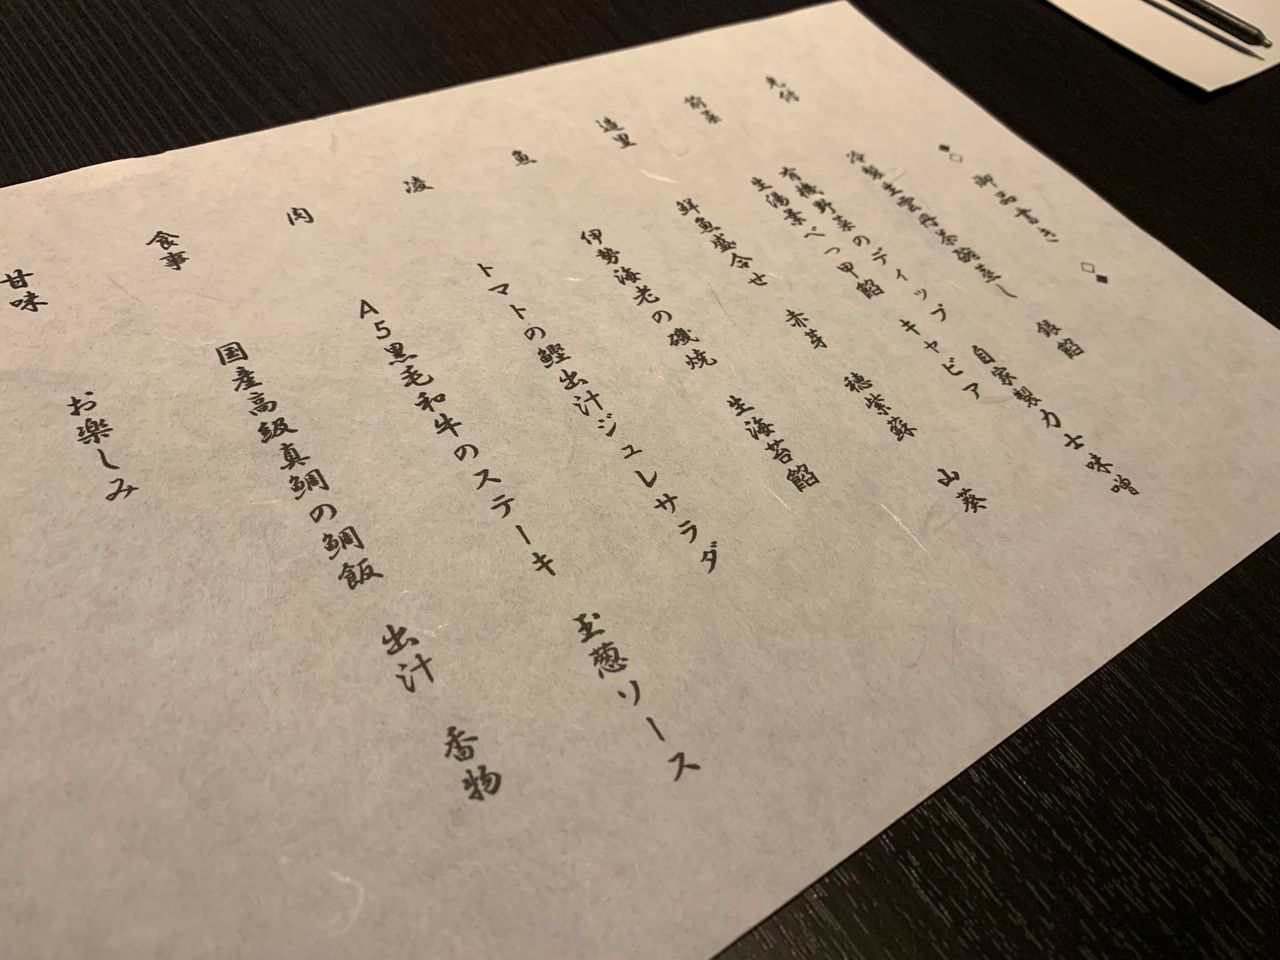 御品書き
先付 冷製生雲丹茶碗蒸し 銀餡
前菜 有機野菜のディップ 自家製力士味噌
生湯葉べっ甲餡 キャビア
造里 鮮魚盛合せ 赤芽 穂紫蘇 山葵
魚 伊勢海老の磯焼 生海苔餡
凌 トマトの鰹出汁ジュレサラダ
肉 A5黒毛和牛のステーキ 玉葱リース
食事 国産高級真鯛の鯛飯 出汁 香物
甘味 お楽しみ